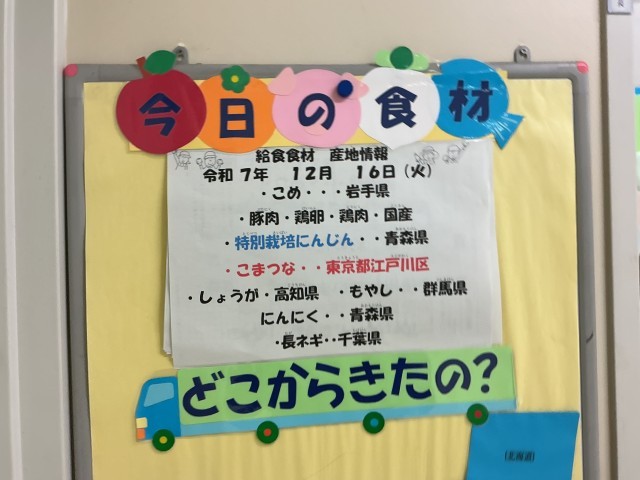 今日の食材
給食食材 産地情報
令和 7年 12月 16日(火)
・こめ・・・岩手県
・豚肉・鶏卵・鶏肉・国産
・特別栽培にんじん・・青森県
・こまつな・・東京都江戸川区
・しょうが・高知県 ・もやし・・群馬県
にんにく・・青森県
・長ネギ・・千葉県
どこからきたの?
(北海道)